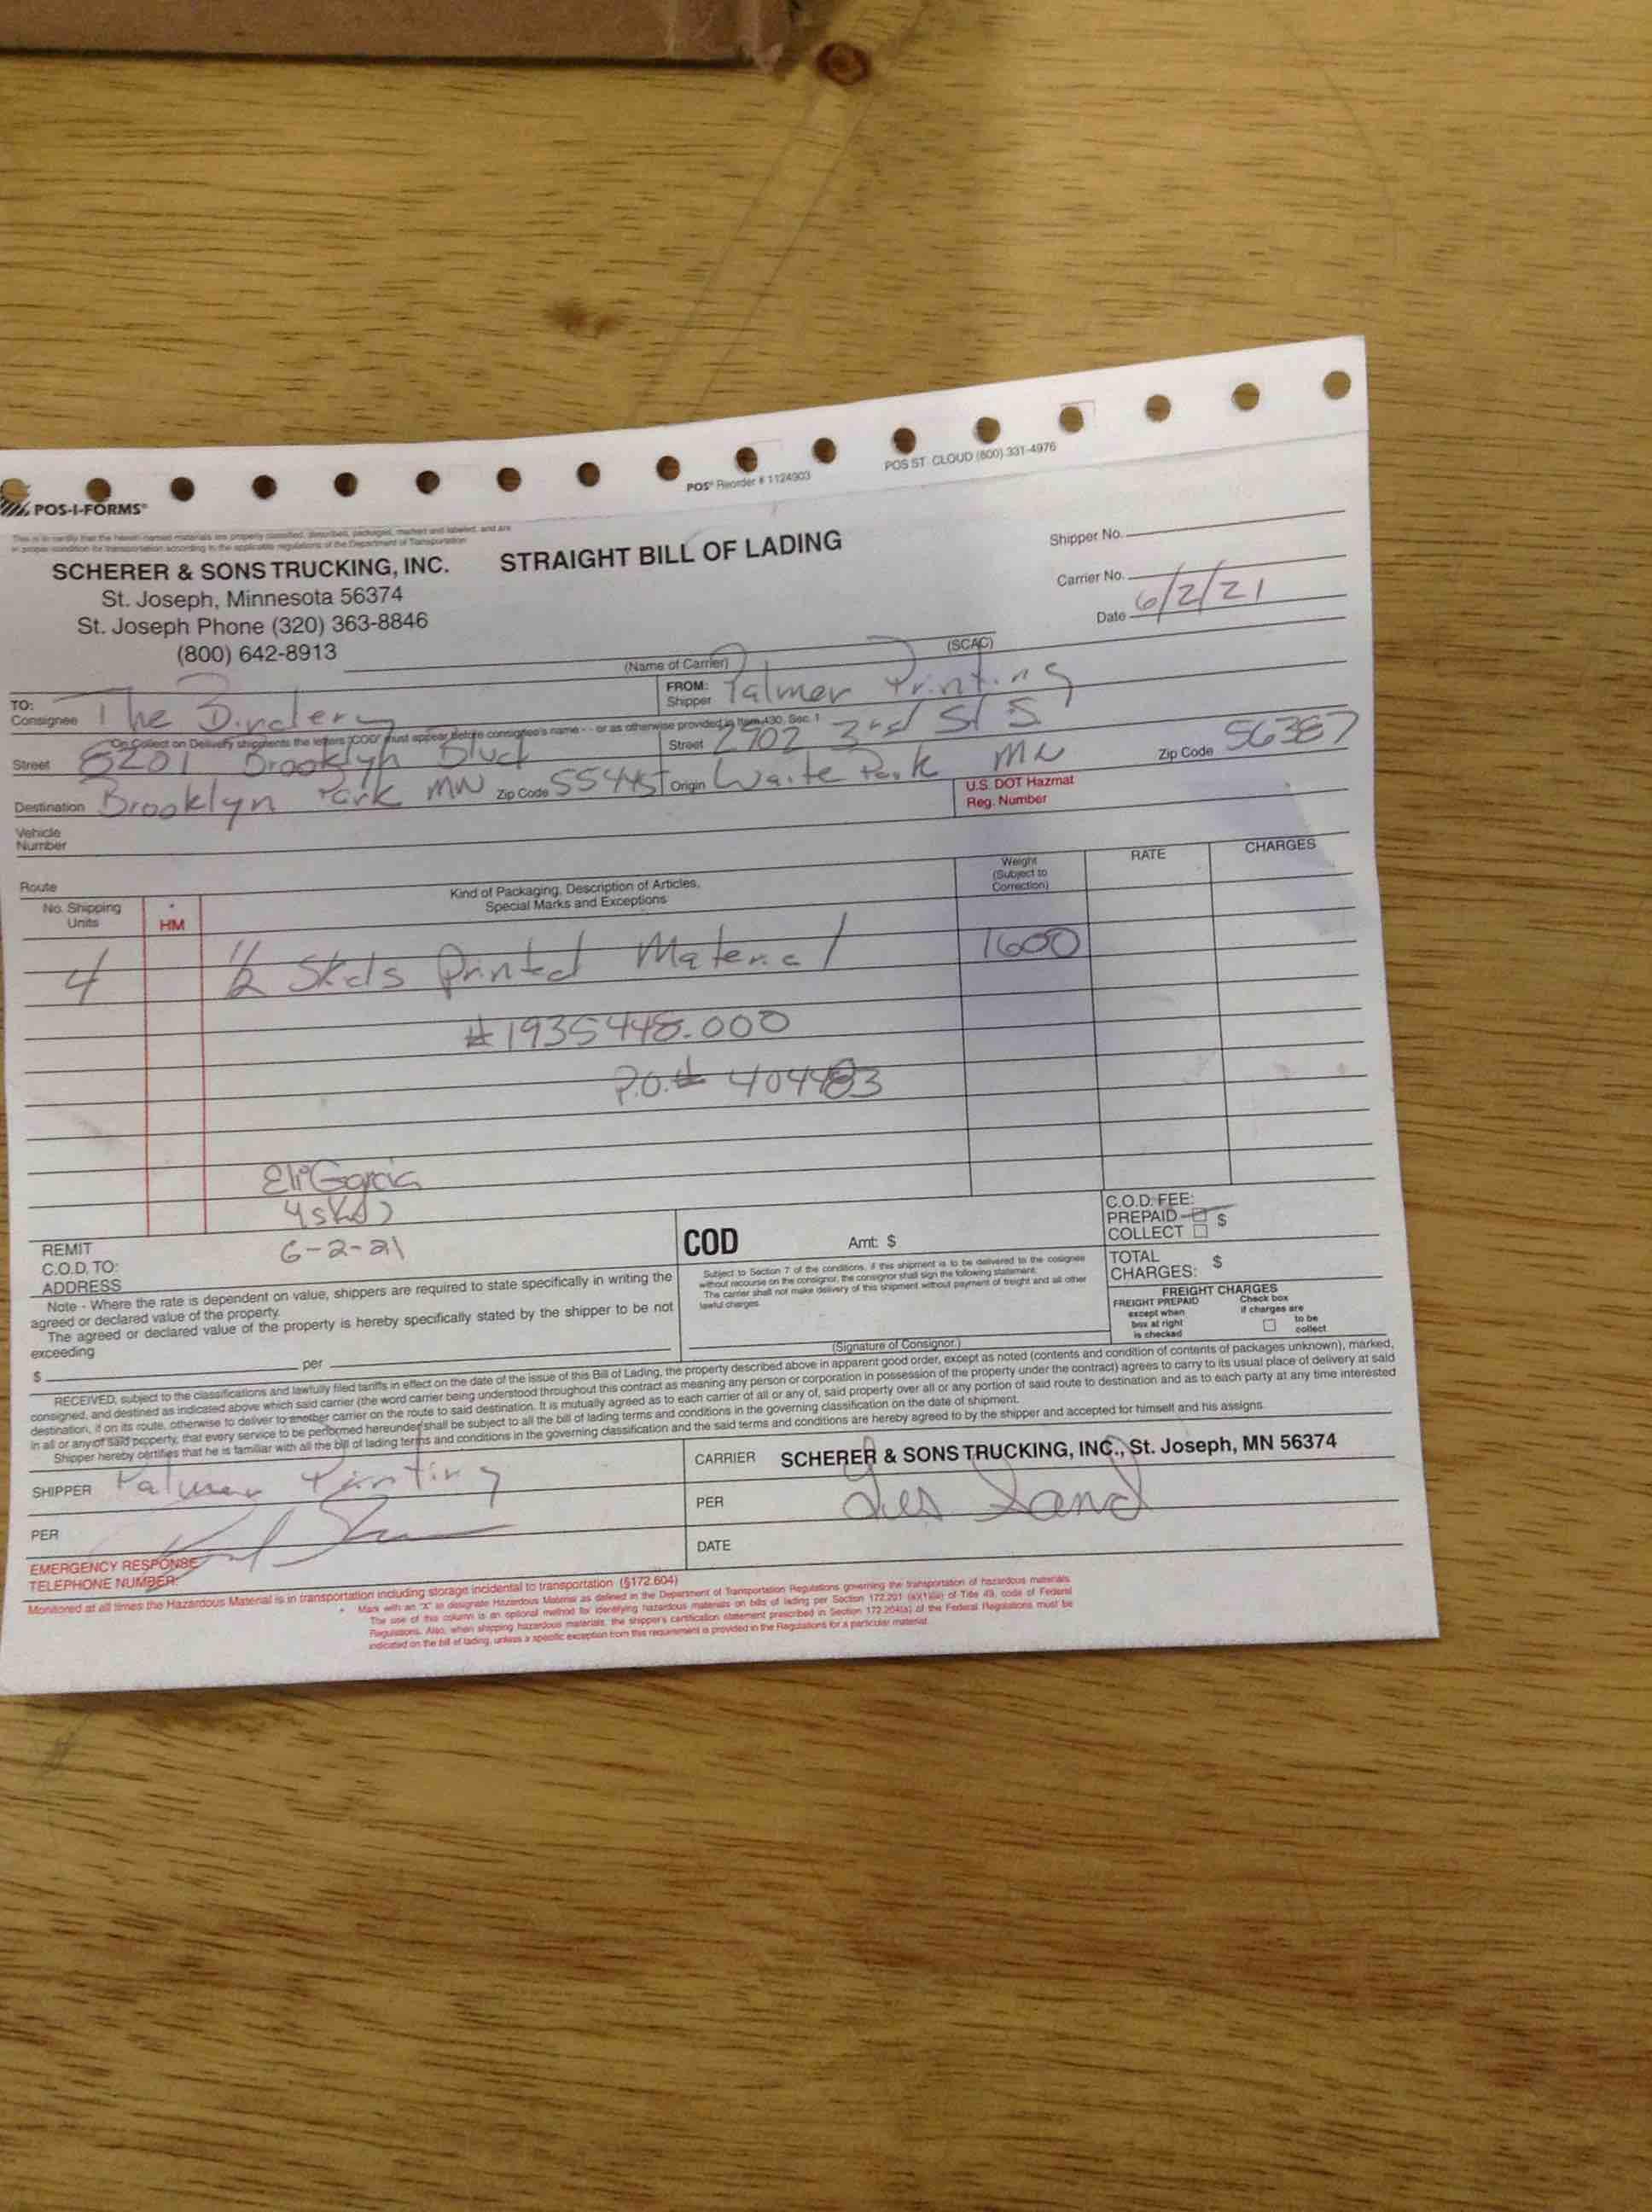 POS® Reorder # 1124903 POS ST. CLOUD (800) 331-4976
POS-I-FORMS®
This is to certify that the herein named materials are properly classified, described, packaged, marked and labeled, and are
in proper condition for transportation according to the applicable regulations of the Department of Transportation
SCHERER & SONS TRUCKING, INC. STRAIGHT BILL OF LADING
St. Joseph, Minnesota 56374
St. Joseph Phone (320) 363-8846
(800) 642-8913
Shipper No.
Carrier No.
Date 6/2/21
(Name of Carrier) (SCAC)
TO: Consignee The Bindery
FROM: Shipper Palmer Printing
On Collect on Delivery shipments the letters "COD" must appear before consignee's name - - or as otherwise provided in Item 430, Sec. 1
Street 8201 Brooklyn Blvd
Street 2902 3rd St S
Destination Brooklyn Park MN Zip Code 55445
Origin Waite Park MN Zip Code 56387
U.S. DOT Hazmat
Reg. Number
Vehicle
Number
Route
No. Shipping Units
* HM
Kind of Packaging, Description of Articles,
Special Marks and Exceptions
Weight (Subject to Correction)
RATE
CHARGES
4 1/2 Skids Printed Material 1600
#1935448.000
P.O.# 404483
Eli Garcia
4 skds
6-2-21
REMIT
C.O.D. TO:
ADDRESS
COD Amt: $
C.O.D. FEE:
PREPAID $
COLLECT
Note - Where the rate is dependent on value, shippers are required to state specifically in writing the
agreed or declared value of the property.
The agreed or declared value of the property is hereby specifically stated by the shipper to be not
exceeding
$ per
Subject to Section 7 of the conditions, if this shipment is to be delivered to the cosignee
without recourse on the consignor, the consignor shall sign the following statement:
The carrier shall not make delivery of this shipment without payment of freight and all other
lawful charges.
(Signature of Consignor.)
TOTAL
CHARGES: $
FREIGHT CHARGES
FREIGHT PREPAID except when box at right is checked
Check box if charges are to be collect
RECEIVED, subject to the classifications and lawfully filed tariffs in effect on the date of the issue of this Bill of Lading, the property described above in apparent good order, except as noted (contents and condition of contents of packages unknown), marked,
consigned, and destined as indicated above which said carrier (the word carrier being understood throughout this contract as meaning any person or corporation in possession of the property under the contract) agrees to carry to its usual place of delivery at said
destination, if on its route, otherwise to deliver to another carrier on the route to said destination. It is mutually agreed as to each carrier of all or any of, said property over all or any portion of said route to destination and as to each party at any time interested
in all or any of said property, that every service to be performed hereunder shall be subject to all the bill of lading terms and conditions in the governing classification on the date of shipment.
Shipper hereby certifies that he is familiar with all the bill of lading terms and conditions in the governing classification and the said terms and conditions are hereby agreed to by the shipper and accepted for himself and his assigns.
SHIPPER Palmer Printing
CARRIER SCHERER & SONS TRUCKING, INC., St. Joseph, MN 56374
PER
PER Les Sand
DATE
EMERGENCY RESPONSE
TELEPHONE NUMBER:
Monitored at all times the Hazardous Material is in transportation including storage incidental to transportation (§172.604)
* Mark with an "X" to designate Hazardous Material as defined in the Department of Transportation Regulations governing the transportation of hazardous materials.
The use of this column is an optional method for identifying hazardous materials on bills of lading per Section 172.201 (a)(1)(iii) of Title 49, code of Federal
Regulations. Also, when shipping hazardous materials, the shipper's certification statement prescribed in Section 172.204(a) of the Federal Regulations must be
indicated on the bill of lading, unless a specific exception from this requirement is provided in the Regulations for a particular material.